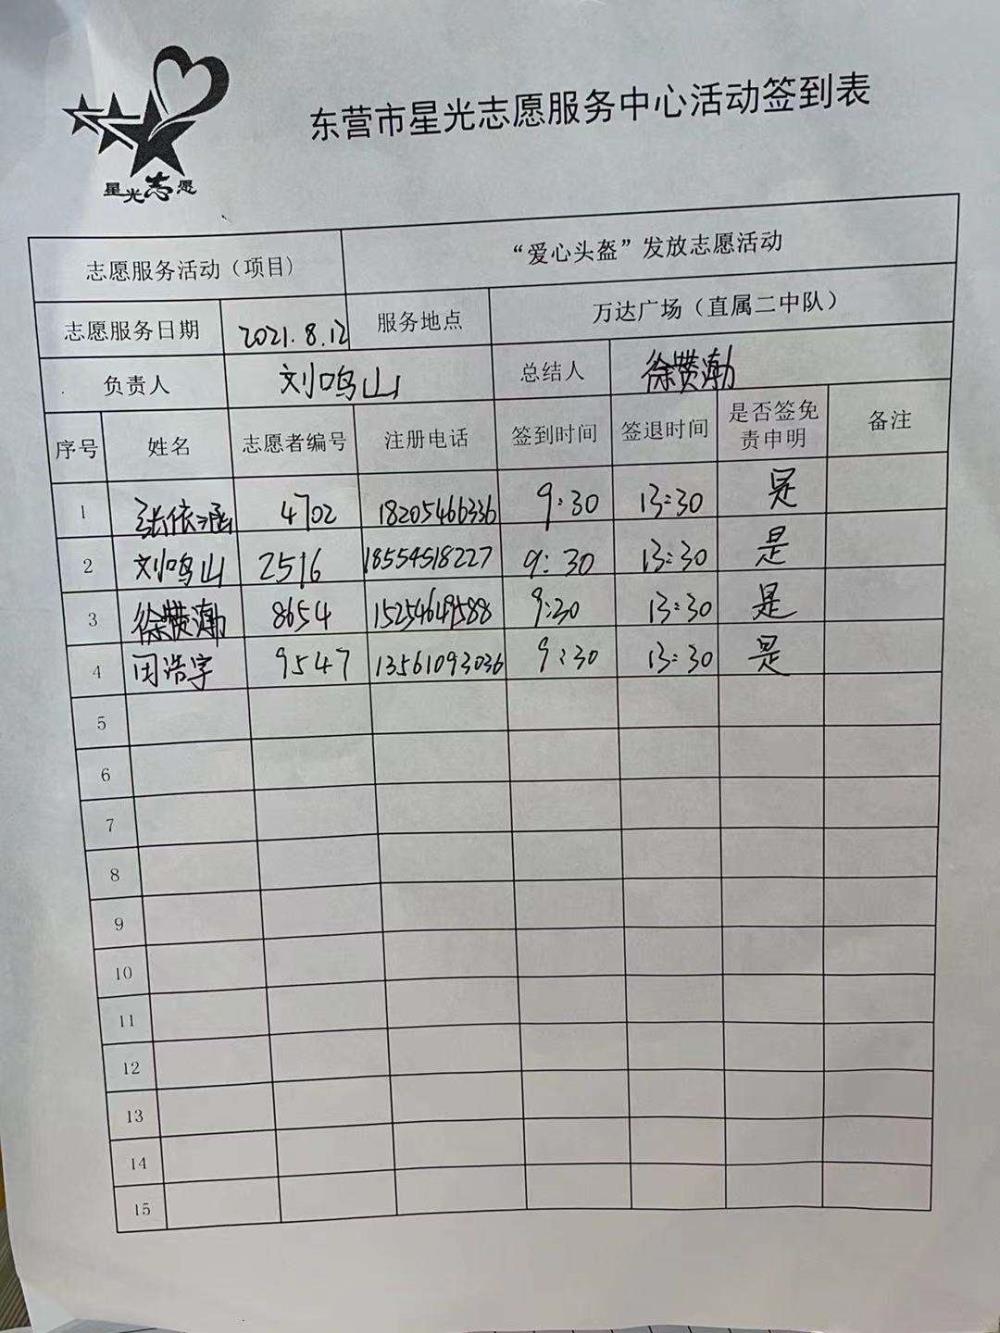 东营市星光志愿服务中心活动签到表
星光志愿
志愿服务活动（项目） “爱心头盔”发放志愿活动
志愿服务日期 2021.8.12 服务地点 万达广场（直属二中队）
负责人 刘鸣山 总结人 徐赞渤
序号 姓名 志愿者编号 注册电话 签到时间 签退时间 是否签免责申明 备注
1 张依涵 4702 18205466336 9:30 13:30 是
2 刘鸣山 2516 18554518227 9:30 13:30 是
3 徐赞渤 8654 15254649588 9:30 13:30 是
4 闵浩宇 9547 13561093036 9:30 13:30 是
5
6
7
8
9
10
11
12
13
14
15